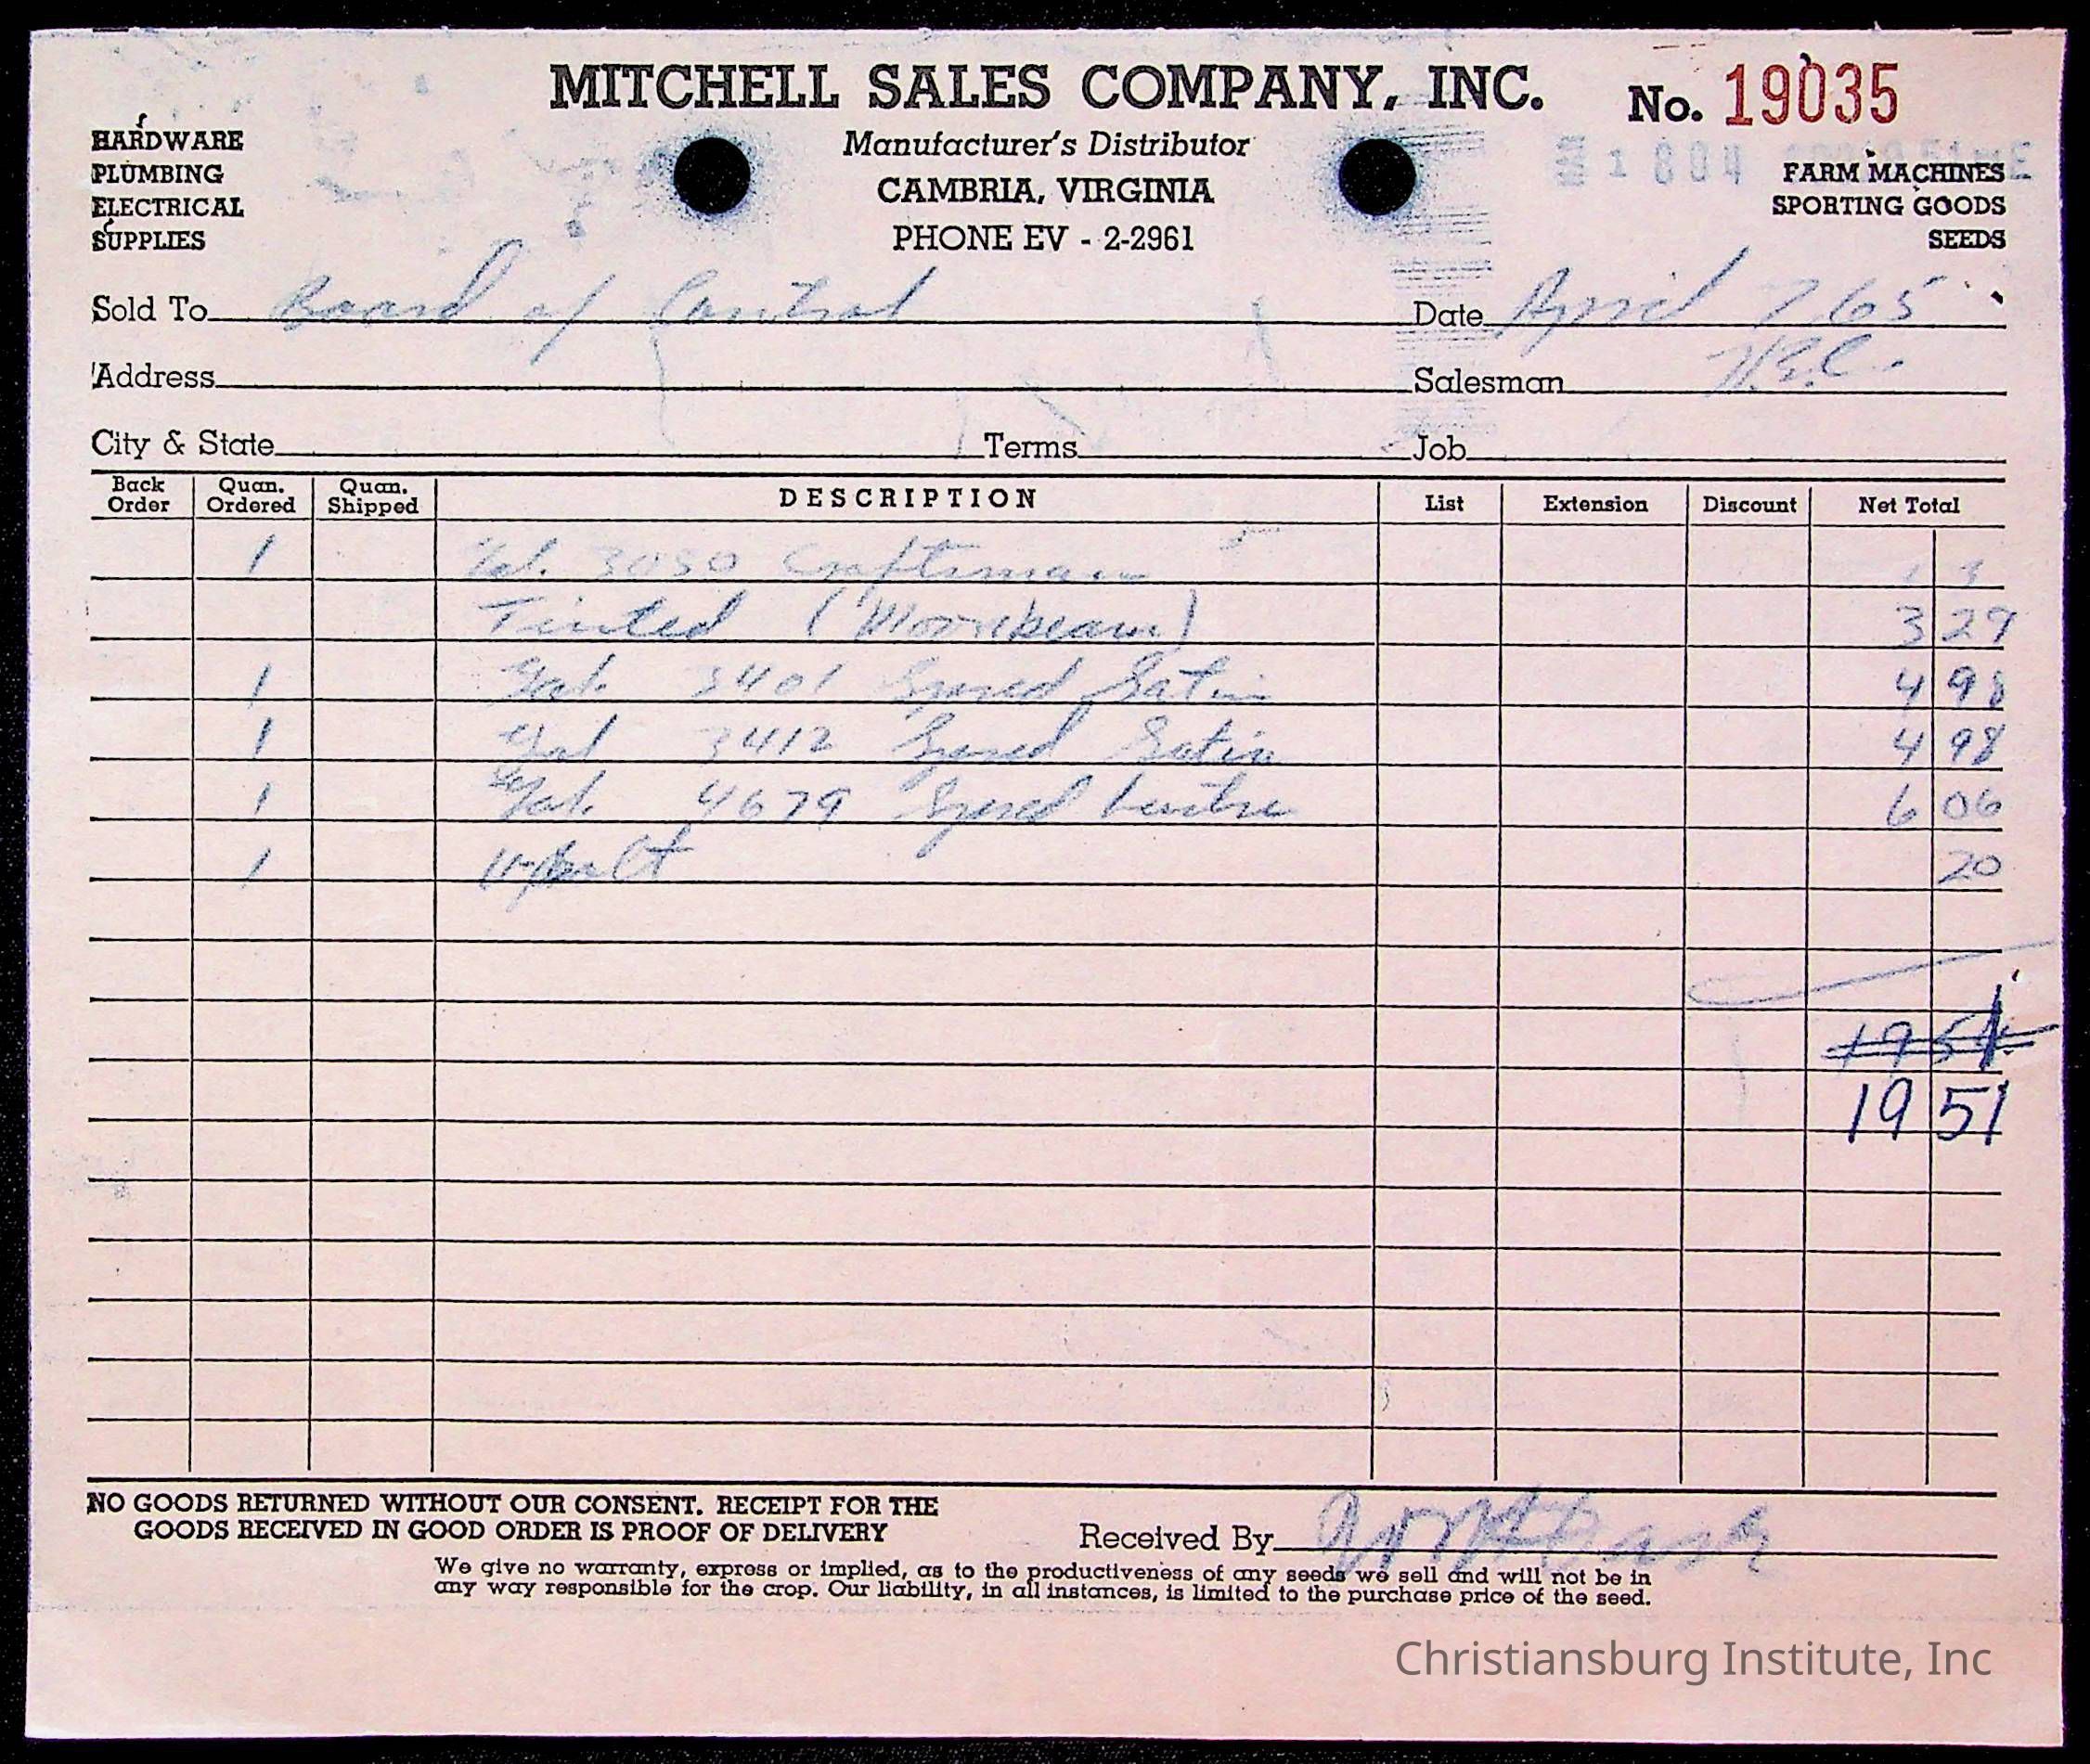 MITCHELL SALES COMPANY, INC.
No. 19035
HARDWARE
PLUMBING
ELECTRICAL
SUPPLIES
Manufacturer's Distributor
CAMBRIA, VIRGINIA
PHONE EV - 2-2961
FARM MACHINES
SPORTING GOODS
SEEDS
Sold To Board of Control Date April 7 65
Address Salesman
City & State Terms Job
Back Order Quan. Ordered Quan. Shipped DESCRIPTION List Extension Discount Net Total
1 Gal. 3050 Craftsman
Tinted (Moonbeam) 3 29
1 Gal. 3401 Spred Satin 4 98
1 Gal 3412 Spred Satin 4 98
1 Gal. 4679 Spred Lustre 6 06
1 20
19 51
NO GOODS RETURNED WITHOUT OUR CONSENT. RECEIPT FOR THE
GOODS RECEIVED IN GOOD ORDER IS PROOF OF DELIVERY
Received By
We give no warranty, express or implied, as to the productiveness of any seeds we sell and will not be in
any way responsible for the crop. Our liability, in all instances, is limited to the purchase price of the seed.
Christiansburg Institute, Inc